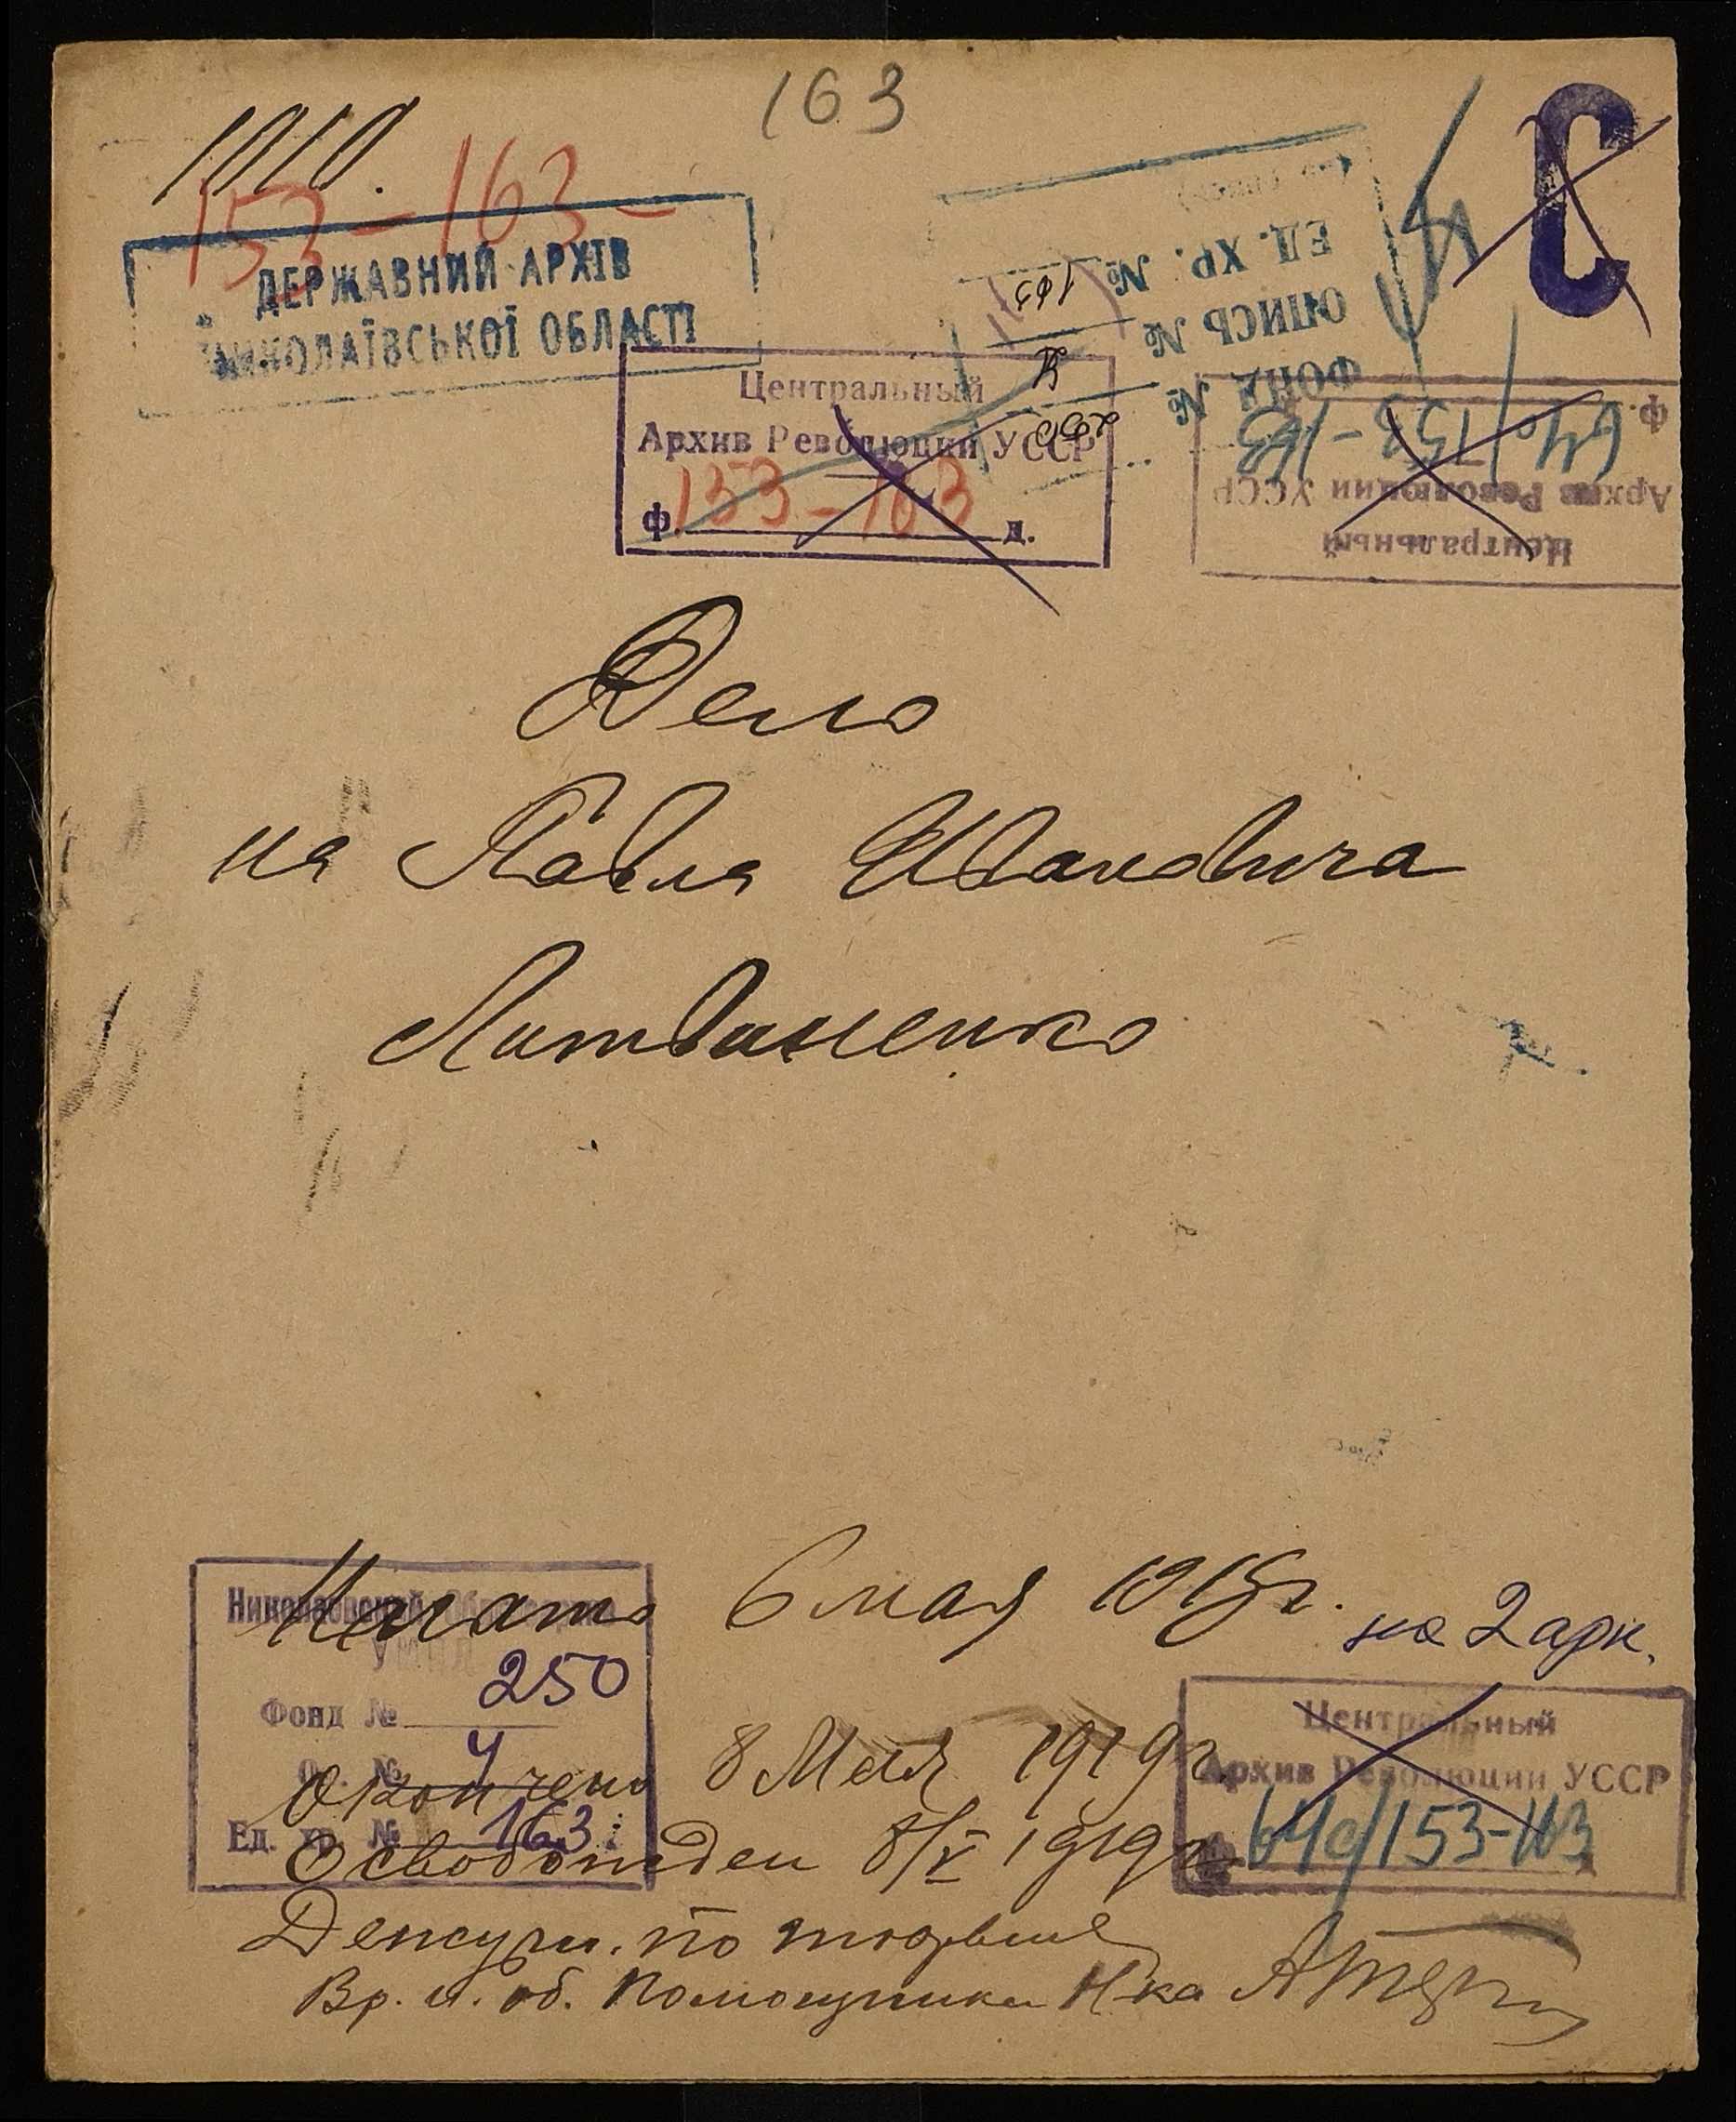 163
153-163-
ДЕРЖАВНИЙ АРХІВ
МИКОЛАЇВСЬКОЇ ОБЛАСТІ
С
ФОНД № 250
ОПИСЬ № 4
ЕД. ХР. № 163
Центральный
Архив Революции УССР
ф. 153-163 д.
Центральный
Архив Революции УССР
ф. 64с/153-163
Дело
на Павла Ивановича
Литвиненко
Начато 6 мая 1919 г.
на 2 арк.
Николаевский
Фонд № 250
Оп. № 4
Ед. хр. № 163
Окончено 8 Мая 1919 г.
Освобожден 8/V 1919 г.
Центральный
Архив Революции УССР
64с/153-163
Дежурн. по тюрьме
Вр. и. об. Помощника Н-ка